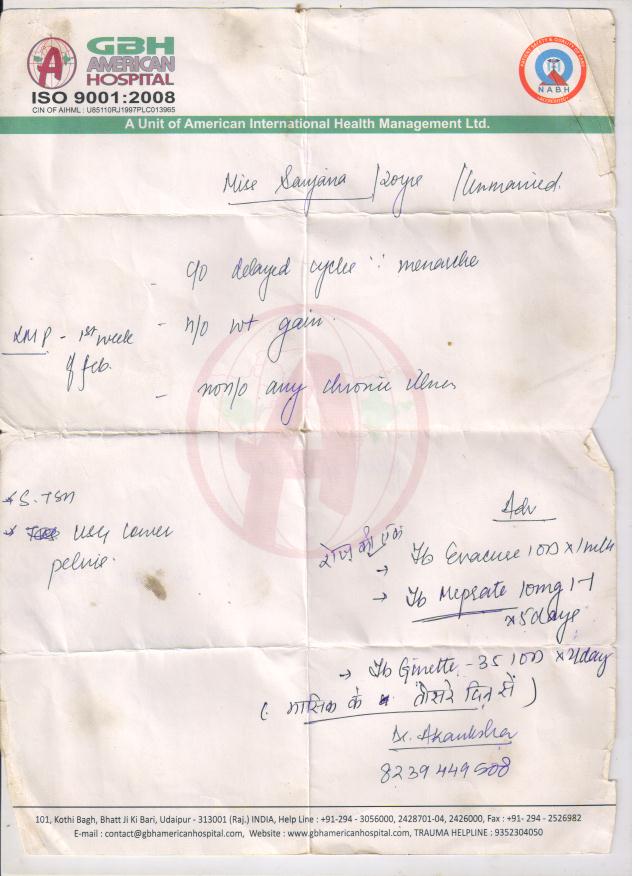 GBH
AMERICAN
HOSPITAL
ISO 9001:2008
CIN OF AIHML : U85110RJ1997PLC013965
N.A.B.H
A Unit of American International Health Management Ltd.
Miss Sanjana / 20yrs / Unmarried.
- c/o delayed cycles ∵ menarche
- h/o wt gain.
LMP - 1st week
of feb.
- no h/o any chronic illness
* S. TSH
* USG Lower
pelvis.
Adv
रोज की एक
→ Tb Evacuse 1 OD x 1 mth
→ Tb Meprate 10mg 1-1
x 5 days
→ Tb Ginette - 35 1 OD x 21 day
( मासिक के तीसरे दिन से )
Dr. Akanksha
8239449508
101, Kothi Bagh, Bhatt Ji Ki Bari, Udaipur - 313001 (Raj.) INDIA, Help Line : +91-294 - 3056000, 2428701-04, 2426000, Fax : +91- 294 - 2526982
E-mail : contact@gbhamericanhospital.com, Website : www.gbhamericanhospital.com, TRAUMA HELPLINE : 9352304050